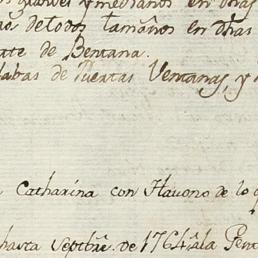 grandes y medianos en otras
de todos tamaños en otras
ate de Bentana.
labas de Puertas Ventanas, y
Catharina con Havono de lo q
hasta Septbre. de 1764 a la